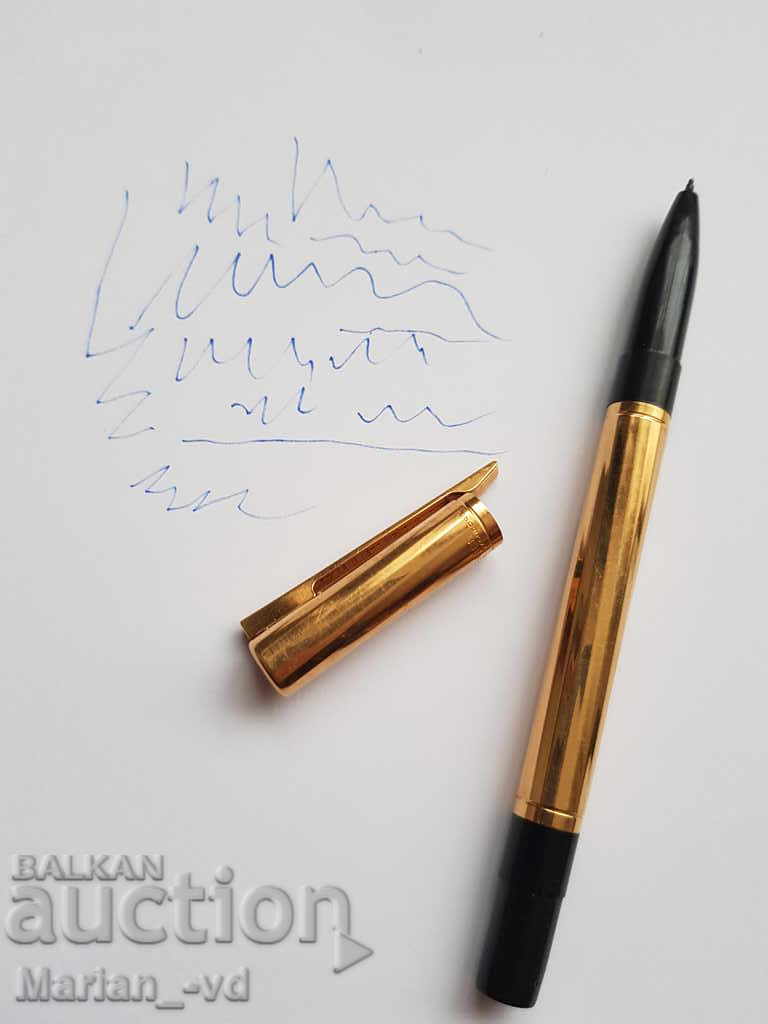 BALKAN
auction
Marian_-vd